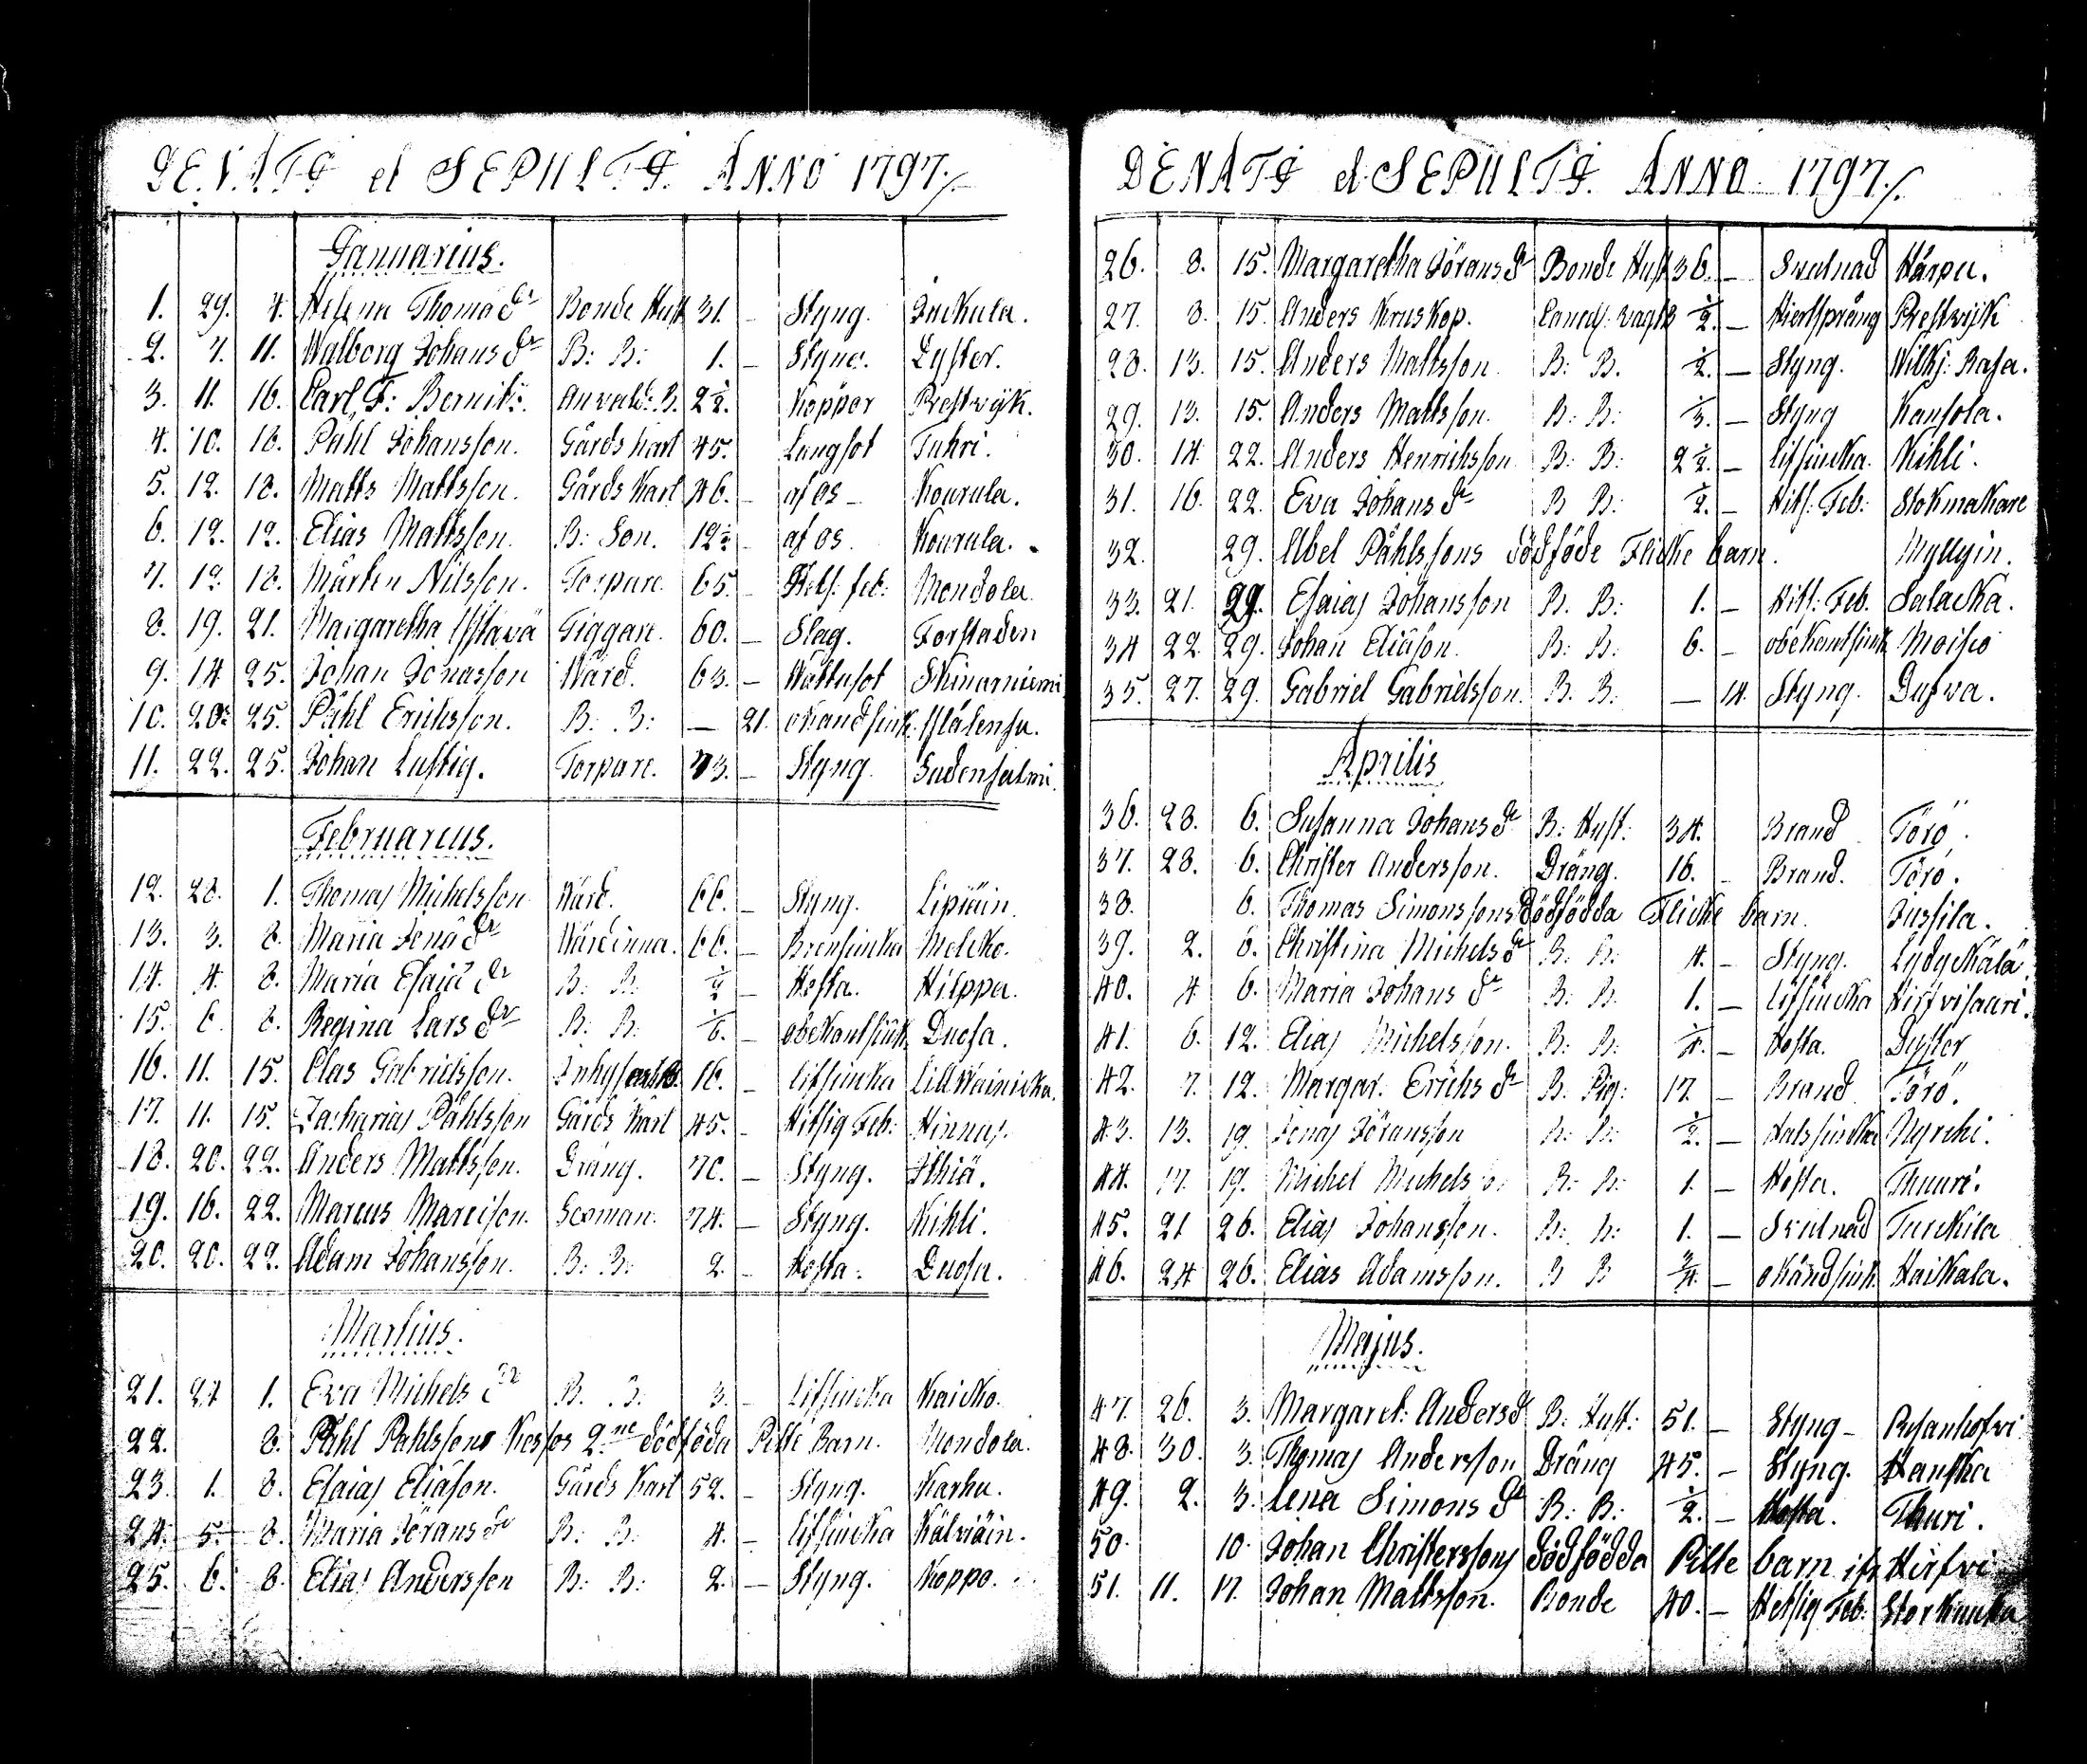 DENATI et SEPULTI. ANNO 1797./.
Januarius.
1. 29. 4. Helena Thomæ dr Bonde Hust 31. – Styng. Juckula.
2. 7. 11. Walborg Johans dr B: B: 1. – Styng. Dyster.
3. 11. 16. Carl F: Bernits. B. 2½. Koppor Prestwijk.
4. 10. 18. Påhl Johansson. Gårds Karl 45. Lungsot Tuhri.
5. 12. 18. Matts Mattsson. Gårds Karl 46. – af os – Kourula.
6. 12. 12. Elias Mattsson. B: Son. 12½ af os. Kourula.
7. 12. 18. Mårten Nilsson. Torpare. 65. – Hets: feb: Mondola.
8. 19. 21. Margaretha Tiggare. 60. – Slag. Torstaden
9. 14. 25. Johan Jonasson Wärd. 63. – Wattusot Skinarniemi.
10. 20. 25. Påhl Erichsson. B: B: – 21. okand siuk.
11. 22. 25. Johan Lustig. Torpare. 73. – Styng. Sudensalmi.
Februarius.
12. 28. 1. Thomas Michelsson Wärd. 66. – Styng. Lipiäin.
13. 3. 8. Maria Jonæ dr Wärdinna. 66. – Brensiucka Molcko.
14. 4. 8. Maria Esaiæ dr B: B: ½ – Hosta. Hilppa.
15. 6. 8. Regina Lars dr B: B: 1/6. – obekantsiuk. Duosa.
16. 11. 15. Clas Gabrielsson. Inhys 16. – litsiucka LillWainicka.
17. 11. 15. Zacharias Påhlsson Gårds Karl 45. – Hitsig Feb: Hinnas.
18. 20. 22. Anders Mattsson. Dräng. 70. – Styng. Ithiä.
19. 16. 22. Marcus Marcison. Socman. 74. – Styng. Kihli.
20. 20. 22. Adam Johansson. B: B: 2. – Hosta. Duosa.
Martius.
21. 24 1. Eva Michels dr B. B: 3. – litsiucka Kaicko.
22. 8. Påhl Påhlssons 2.ne dödföda Pilte Barn. Mondola.
23. 1. 8. Esaias Eliæson. Gårds Karl 52. – Styng. Karhu.
24. 5. 8. Maria Jörans dr B: B: 4. – litsiucka Kälviäin.
25. 6. 8. Elias Andersson B: B: 2. – Styng. Koppo.
DENATI et SEPULTI. ANNO 1797./.
26. 8. 15. Margaretha Jörans dr Bonde Hust 36. – Svulnad Härpu.
27. 8. 15. Anders Kruskop. ½. – Hiertsprång Prestwijk
28. 13. 15. Anders Mattsson. B: B. ½. – Styng. Wilks: Rasa.
29. 13. 15. Anders Mattsson. B: B: ⅓. – Styng Kansola.
30. 14. 22. Anders Henrichsson B: B: 2½. – litsiucka. Kihli.
31. 16. 22. Eva Johans dr B B: ½. – Hits: Feb: Stokmakare
32. 29. Abel Påhlssons dödföde Flicke barn. Myllyin.
33. 21. 29. Esaias Johansson B. B: 1. – Hits: Feb. Salacka.
34 22. 29. Johan Eliæson. B: B: 6. – obekantsiuk Moisio
35. 27. 29. Gabriel Gabrielsson. B. B: – 14. Styng. Dufva.
Aprilis
36. 28. 6. Susanna Johans dr B: Hust: 34. Brand Törö.
37. 28. 6. Christer Andersson. Dräng. 16. – Brand. Törö.
38. 6. Thomas Simonssons Dödfödda Flicke barn. Jussila.
39. 2. 6. Christina Michels dr B: B: 4. – Styng. Lydyckälä.
40. 4 6. Maria Johans dr B: B. 1. – litsiucka Hirfvisauri.
41. 6. 12. Elias Michelsson. B: B: ¼. – Hosta. Dyster
42. 7. 12. Margar: Erichs dr B. Pig: 17. – Brand. Törö.
43. 13. 19. Jonas Jöransson B: B: ½. – Halssiucka Nyrchi.
44. 17. 19. Michel Michelsson B: B: 1. – Hosta. Thuuri.
45. 21 26. Elias Johansson. B: B: 1. – Svulnad Turckila
46. 24 26. Elias Adamsson. B B ¾. – okändsiuk. Haikala.
Majus.
47. 26. 3. Margaret: Anders dr B: Hust: 51. – Styng –
48. 30. 3. Thomas Andersson Dräng 45. – Styng. Hanska
49. 2. 3. Lena Simons dr B: B: ½. – Hosta. Thuri.
50. 10. Johan Christerssons dödfödda Pilte barn Hirfvi
51. 11. 17. Johan Mattsson. Bonde 40. – Hetsig Feb: